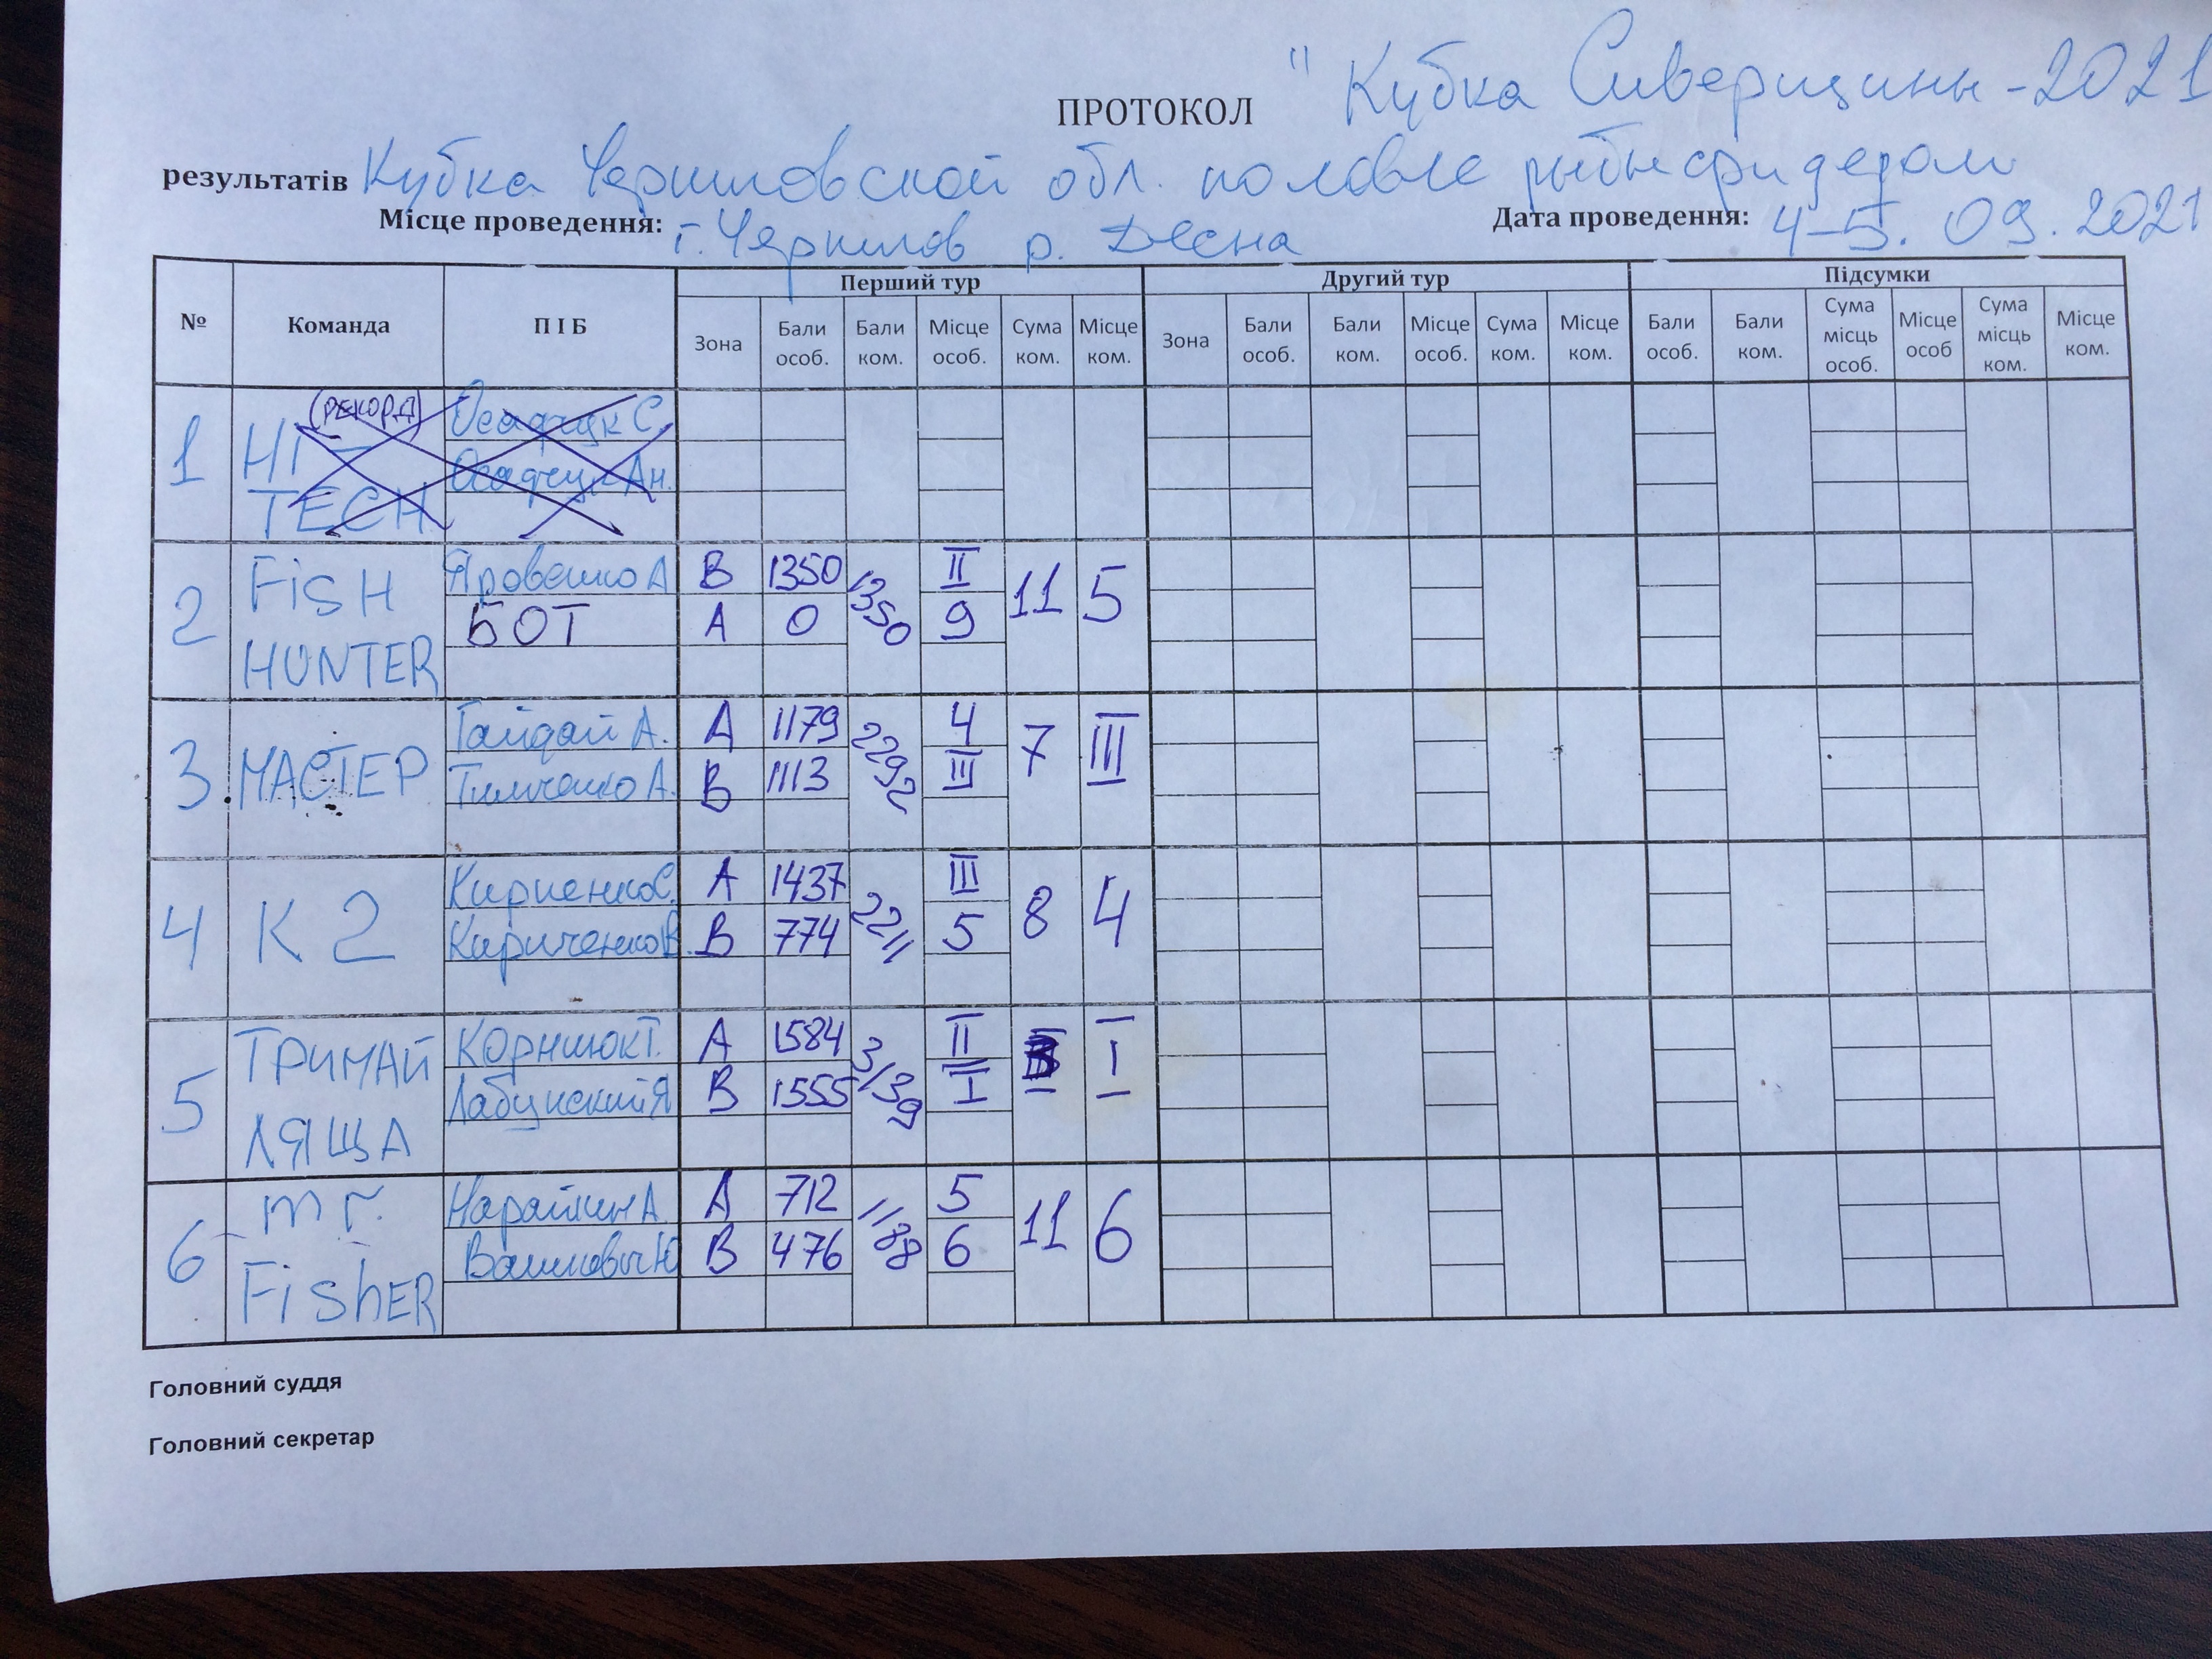 ПРОТОКОЛ "Кубка Сиверщины-2021
результатів Кубка Черниговской обл. по ловле рыбы фидером
Місце проведення: г. Чернигов р. Десна Дата проведення: 4-5. 09. 2021
№ Команда П І Б Перший тур Другий тур Підсумки
Зона Бали особ. Бали ком. Місце особ. Сума ком. Місце ком. Зона Бали особ. Бали ком. Місце особ. Сума ком. Місце ком. Бали особ. Бали ком. Сума місць особ. Місце особ Сума місць ком. Місце ком.
1 HI-TECH (РЕКОРД) Осадчук С.
Осадчук Ан.
2 FiSH HUNTER Яровенко А B 1350 1350 II 11 5
БОТ A 0 9
3 МАСТЕР Гайдай А. A 1179 2292 4 7 III
Тимченко А. B 1113 III
4 К2 Кириенко С. A 1437 2211 III 8 4
Кириченко В. B 774 5
5 ТРИМАЙ ЛЯЩА Корнюк Т. A 1584 3139 II 3 I
Лабунский Я B 1555 I
6 mr. FishER A 712 1188 5 11 6
B 476 6
Головний суддя
Головний секретар